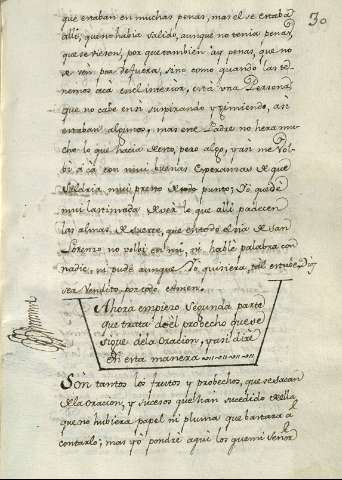 30
que estaban en muchas penas, mas el se estaba
alli, que no habia salido, aunque no tenia penas,
que se viesen, por que tambien ay penas, que no
se ven por defuera, sino como quando las te-
nemos acà en el interior, està una Persona
que no cabe en si suspirando y gimiendo, asi
estaban algunos, mas este Padre no hera mu-
cho lo que hacia desto, pero algo, y asi me bol-
bi a cà con mui buenas esperanzas de que
saldria mui presto de punto; Yo quedè
mui lastimada de ver lo que alli padecen
las almas, de suerte, que en todo el dia de San
Lorenzo no bolbi en mi, ni hablè palabra con
nadie, ni pude aunque Yo quisiera, estube, Dios
sea vendito, por todo estmen.
Ahora empiezo Segunda parte
que trata de èl probecho que se
sigue de la oracion, y asi dirè
en esta manera
Son tantos los frutos y probechos, que se sacan
de la oracion, y sucesos que han sucedido en ella,
que no hubiera papel ni pluma que bastara à
contarlo; mas yo pondrè aqui los que mi Señor